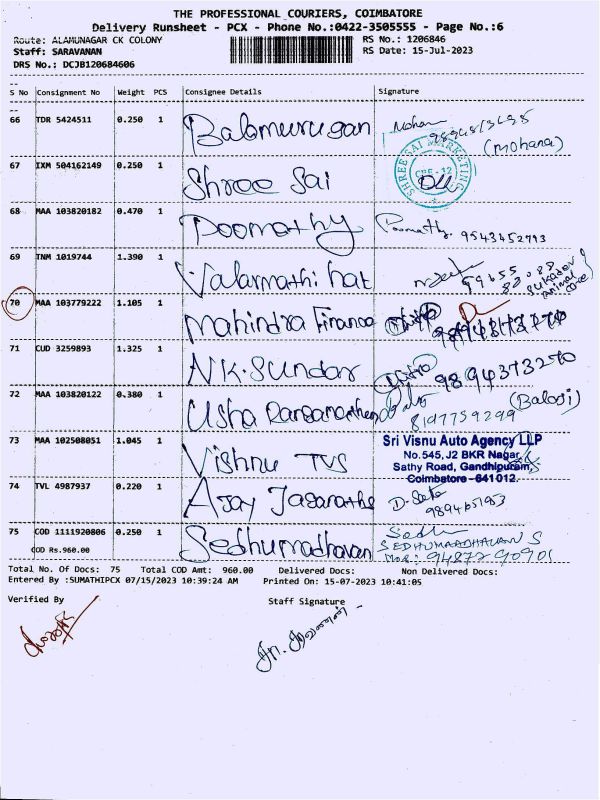 THE PROFESSIONAL COURIERS, COIMBATORE
Delivery Runsheet - PCX - Phone No.:0422-3505555 - Page No.:6
Route: ALAMUNAGAR CK COLONY
RS No.: 1206846
Staff: SARAVANAN
RS Date: 15-Jul-2023
DRS No.: DCJB120684606
S No Consignment No Weight PCS Consignee Details Signature
66 TDR 5424511 0.250 1 Balamurugan Mohan
(Mohana)
67 IXM 504162149 0.250 1 Shree Sai
SHREE SAI MARKETING
68 MAA 103820182 0.470 1 Poomathy 9543452793
69 TNM 1019744 1.390 1 Valarmathi hat
70 MAA 103779222 1.105 1 Mahindra Finance
71 CUD 3259893 1.325 1 N.K.Sundar 9894373270
72 MAA 103820122 0.380 1 Usha (Balaji)
8197759299
73 MAA 102508051 1.045 1 Vishnu TVS
Sri Visnu Auto Agency LLP
No.545, J2 BKR Nagar,
Sathy Road, Gandhipuram,
Coimbatore - 641012.
74 TVL 4987937 0.220 1 Ajay
75 COD 1111920806 0.250 1 Sedhumadhavan
COD Rs.960.00
SEDHUMAADHAVAN S
Mob: 9487790901
Total No. Of Docs: 75 Total COD Amt: 960.00 Delivered Docs: Non Delivered Docs:
Entered By :SUMATHIPCX 07/15/2023 10:39:24 AM Printed On: 15-07-2023 10:41:05
Verified By Staff Signature